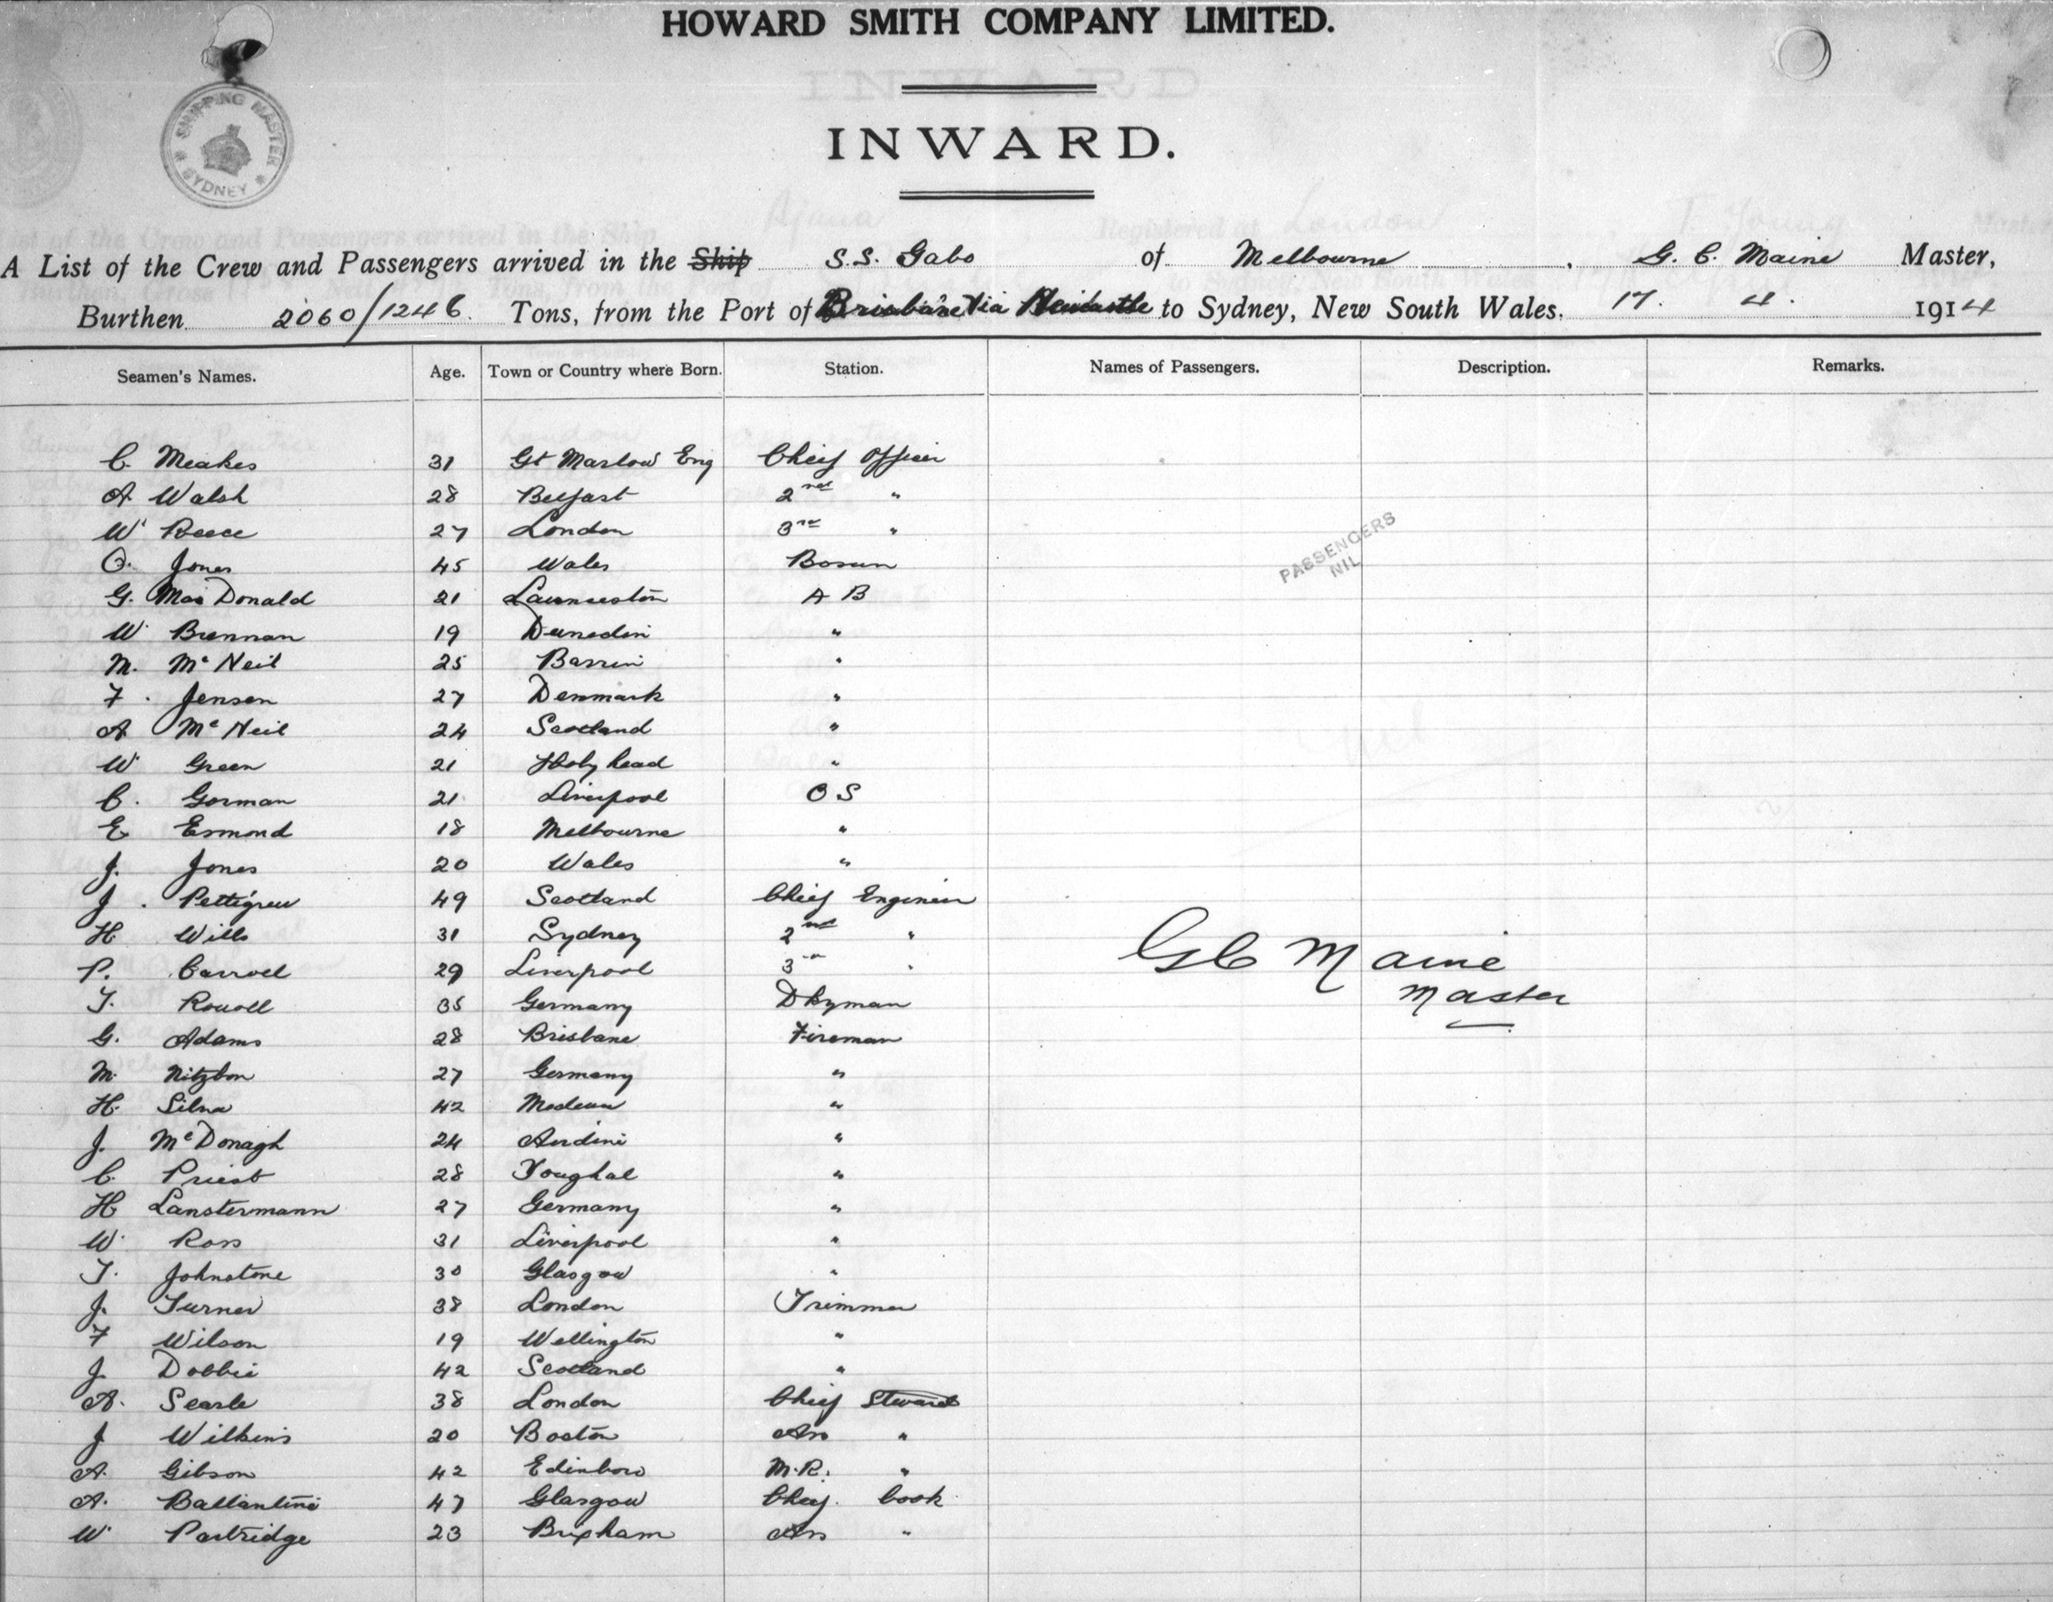 HOWARD SMITH COMPANY LIMITED.
SHIPPING MASTER
SYDNEY
INWARD.
A List of the Crew and Passengers arrived in the Ship S.S. Gabo of Melbourne, G. C. Maine Master,
Burthen 2060/1246 Tons, from the Port of Brisbane via Newcastle to Sydney, New South Wales. 17. 4. 1914
Seamen's Names. Age. Town or Country where Born. Station. Names of Passengers. Description. Remarks.
C. Meakes 31 Gt Marlow Eng Chief Officer
A Walsh 28 Belfast 2nd "
W Reece 27 London 3rd "
PASSENGERS
NIL
O. Jones 45 Wales Bosun
G. MacDonald 21 Launceston A B
W Brennan 19 Dunedin "
M. McNeil 25 "
F. Jensen 27 Denmark "
A McNeil 24 Scotland "
W Green 21 Holyhead "
C. Gorman 21 Liverpool O S
E Esmond 18 Melbourne "
J. Jones 20 Wales "
J. Pettigrew 49 Scotland Chief Engineer
H Wills 31 Sydney 2nd "
P. Carroll 29 Liverpool 3rd "
G C Maine
Master
T. 35 Germany Dkyman
G. Adams 28 Brisbane Fireman
M. 27 Germany "
H. Silva 42 "
J. McDonagh 24 "
C. Priest 28 Youghal "
H Lanstermann 27 Germany "
W Ross 31 Liverpool "
T. Johnstone 30 Glasgow "
J. Turner 38 London Trimmer
F Wilson 19 Wellington "
J. Dobbie 42 Scotland "
A. Searle 38 London Chief Steward
J Wilkins 20 Boston Ass "
A. Gibson 42 Edinboro M.R. "
A. Ballantine 47 Glasgow Chief Cook
W Partridge 23 Brixham Ass "